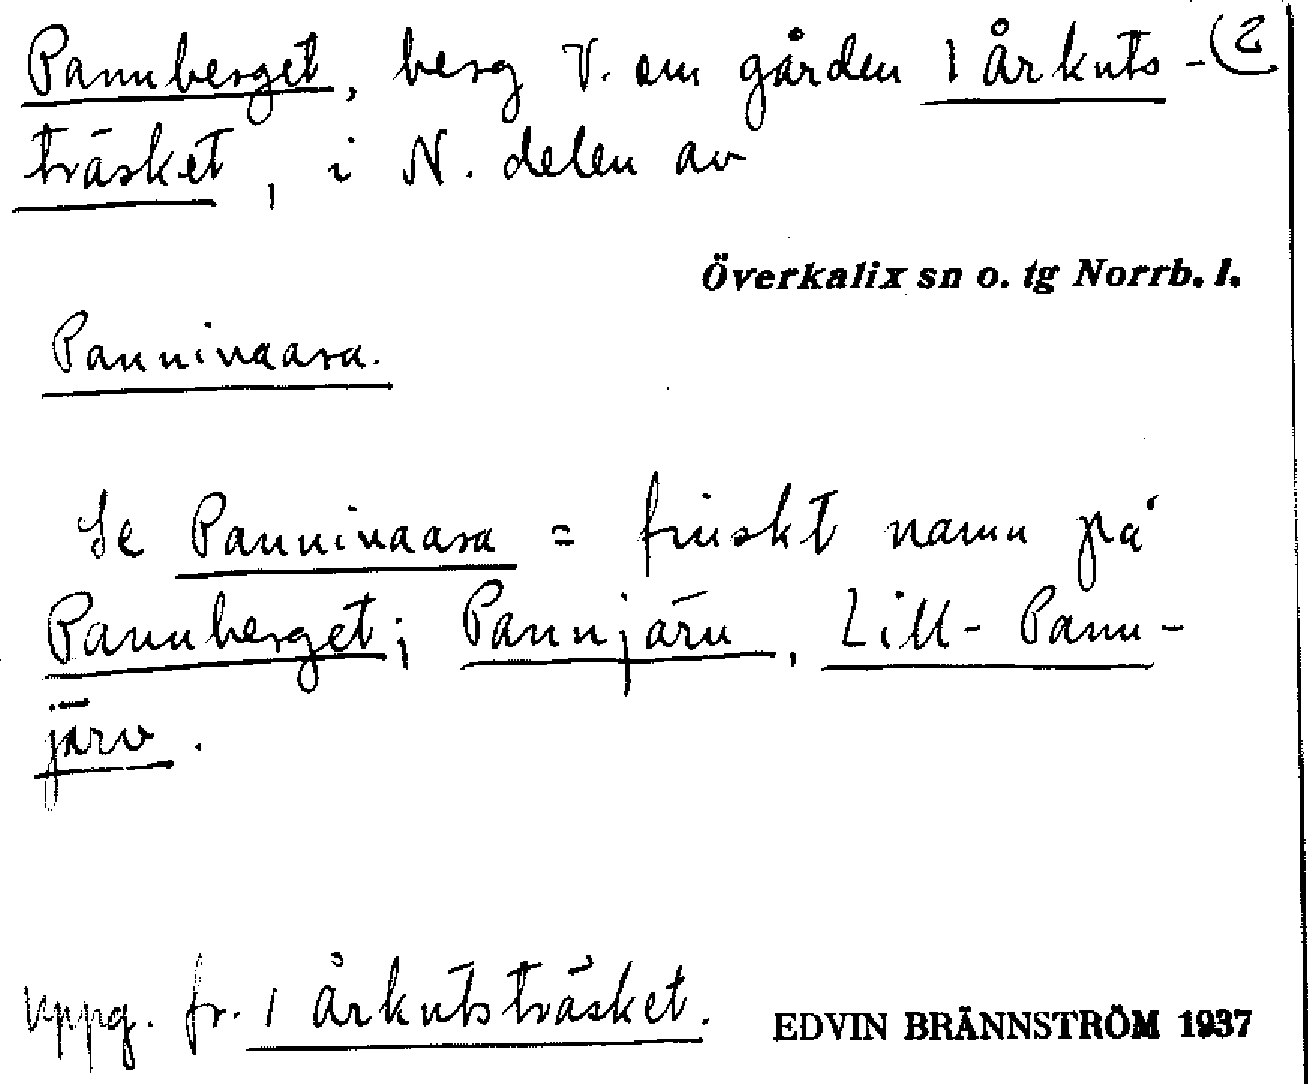 Pannberget, berg V. om gården 1 Årkuts- (2
träsket, i N. delen av
Överkalix sn o. tg Norrb. l.
Pannivaara.
Se Pannivaara = finskt namn på
Pannberget; Pannjärv, Lill-Pann-
järv.
uppg. fr. 1 Årkutsträsket.
EDVIN BRÄNNSTRÖM 1937